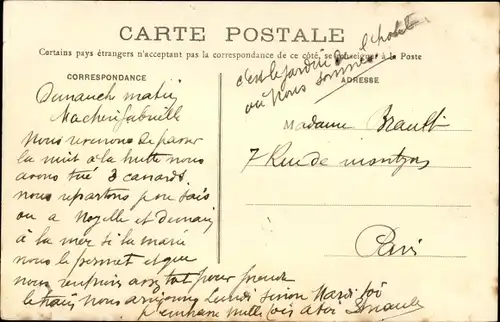 CARTE POSTALE
Certains pays étrangers n'acceptant pas la correspondance de ce côté, se renseigner à la Poste
CORRESPONDANCE
ADRESSE
c'est le jardin de l'hotel
où nous sommes
Dimanche matin
Ma chère Gabrielle
Nous revenons de passer
la nuit a la hutte nous
avons tué 3 canards
nous repartons
ou a Noyelle et Demain
à la mer si la marée
nous le permet et que
nous assez tot pour prendre
le train Nous arriverons Lundi sinon Mardi soi
mille fois a toi
Madame
7 Rue de
Paris